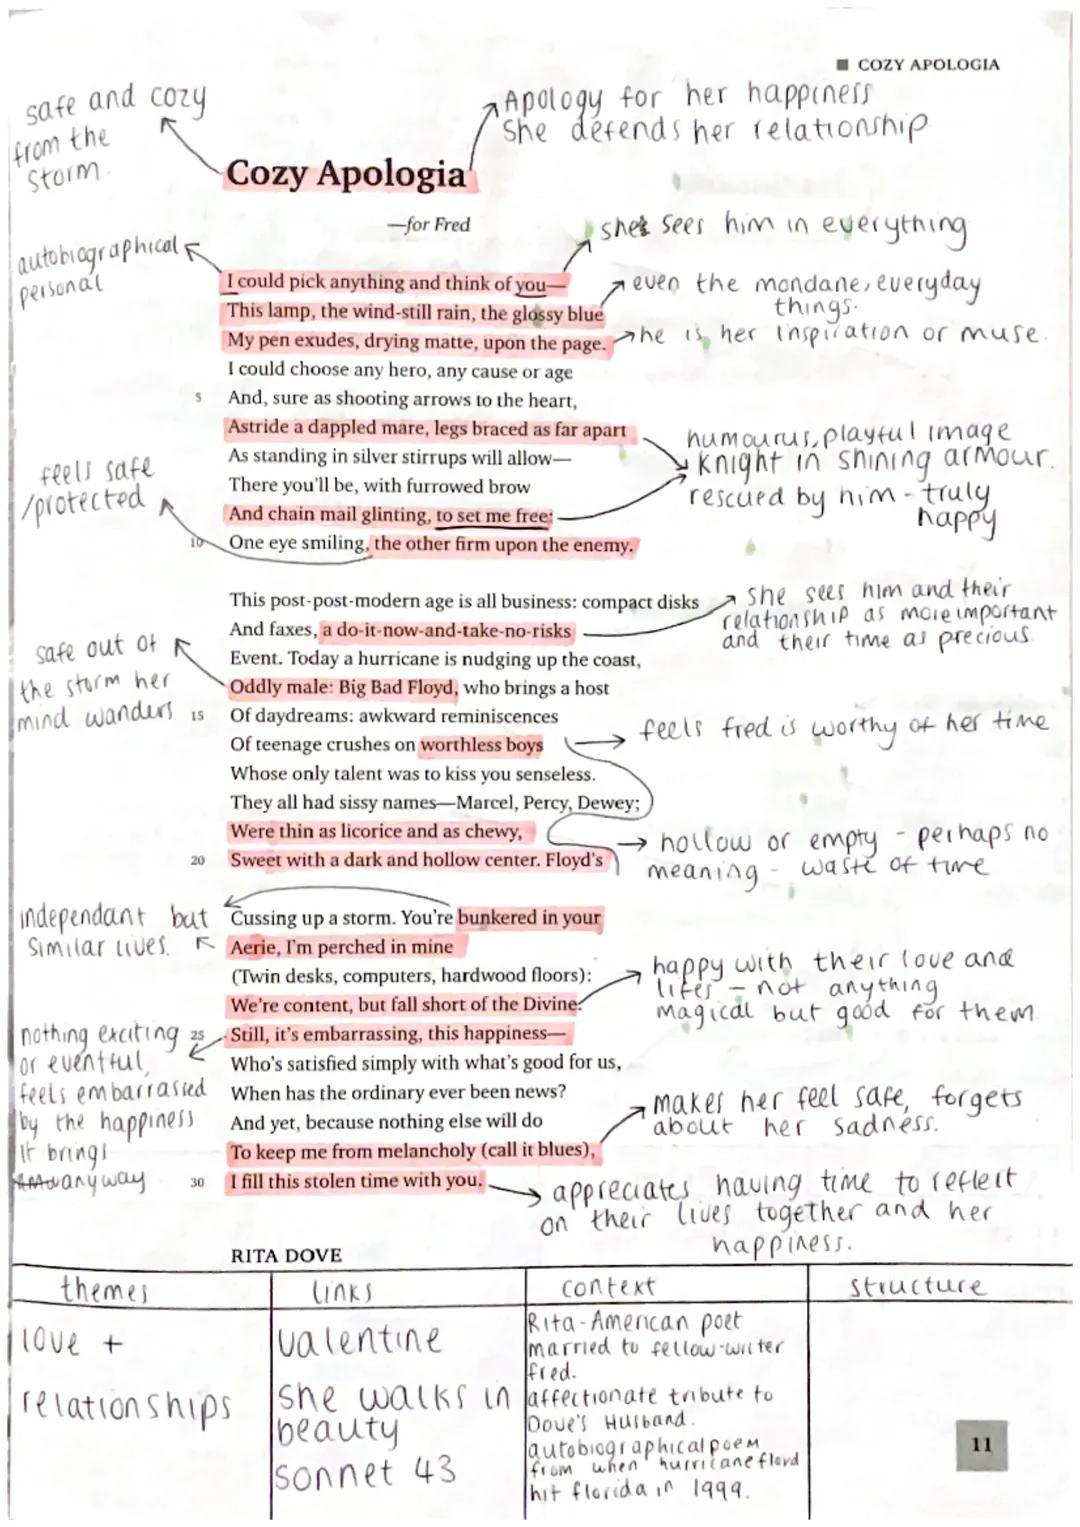 COZY APOLOGIA
safe and cozy
from the
storm.
Apology for her happiness
She defends her relationship
Cozy Apologia
—for Fred
autobiographical
personal
she sees him in everything
I could pick anything and think of you—
even the mondane, everyday
things.
This lamp, the wind-still rain, the glossy blue
My pen exudes, drying matte, upon the page.
he is her inspiration or muse.
I could choose any hero, any cause or age
5 And, sure as shooting arrows to the heart,
Astride a dappled mare, legs braced as far apart
humourus, playful image
Knight in shining armour.
rescued by him - truly
happy
As standing in silver stirrups will allow—
There you'll be, with furrowed brow
feels safe
/protected
And chain mail glinting, to set me free:
10 One eye smiling, the other firm upon the enemy.
This post-post-modern age is all business: compact disks
she sees him and their
relationship as more important
and their time as precious.
And faxes, a do-it-now-and-take-no-risks
Event. Today a hurricane is nudging up the coast,
safe out of
the storm her
mind wanders
Oddly male: Big Bad Floyd, who brings a host
15 Of daydreams: awkward reminiscences
Of teenage crushes on worthless boys
feels fred is worthy of her time
Whose only talent was to kiss you senseless.
They all had sissy names—Marcel, Percy, Dewey;
Were thin as licorice and as chewy,
20 Sweet with a dark and hollow center. Floyd's
hollow or empty - perhaps no
meaning - waste of time
independant but
similar lives.
Cussing up a storm. You're bunkered in your
Aerie, I'm perched in mine
(Twin desks, computers, hardwood floors):
We're content, but fall short of the Divine.
happy with their love and
lifes - not anything
magical but good for them.
25 Still, it's embarrassing, this happiness—
nothing exciting
or eventful,
feels embarrassed
by the happiness
it brings
anyway
Who's satisfied simply with what's good for us,
When has the ordinary ever been news?
And yet, because nothing else will do
To keep me from melancholy (call it blues),
makes her feel safe, forgets
about her sadness.
30 I fill this stolen time with you.
appreciates having time to reflect
on their lives together and her
happiness.
RITA DOVE
themes
love +
relationships
links
valentine
she walks in
beauty
sonnet 43
context
Rita-American poet
married to fellow-writer
fred.
affectionate tribute to
Dove's Husband.
autobiographical poem
from when hurricane floyd
hit florida in 1999.
structure
11